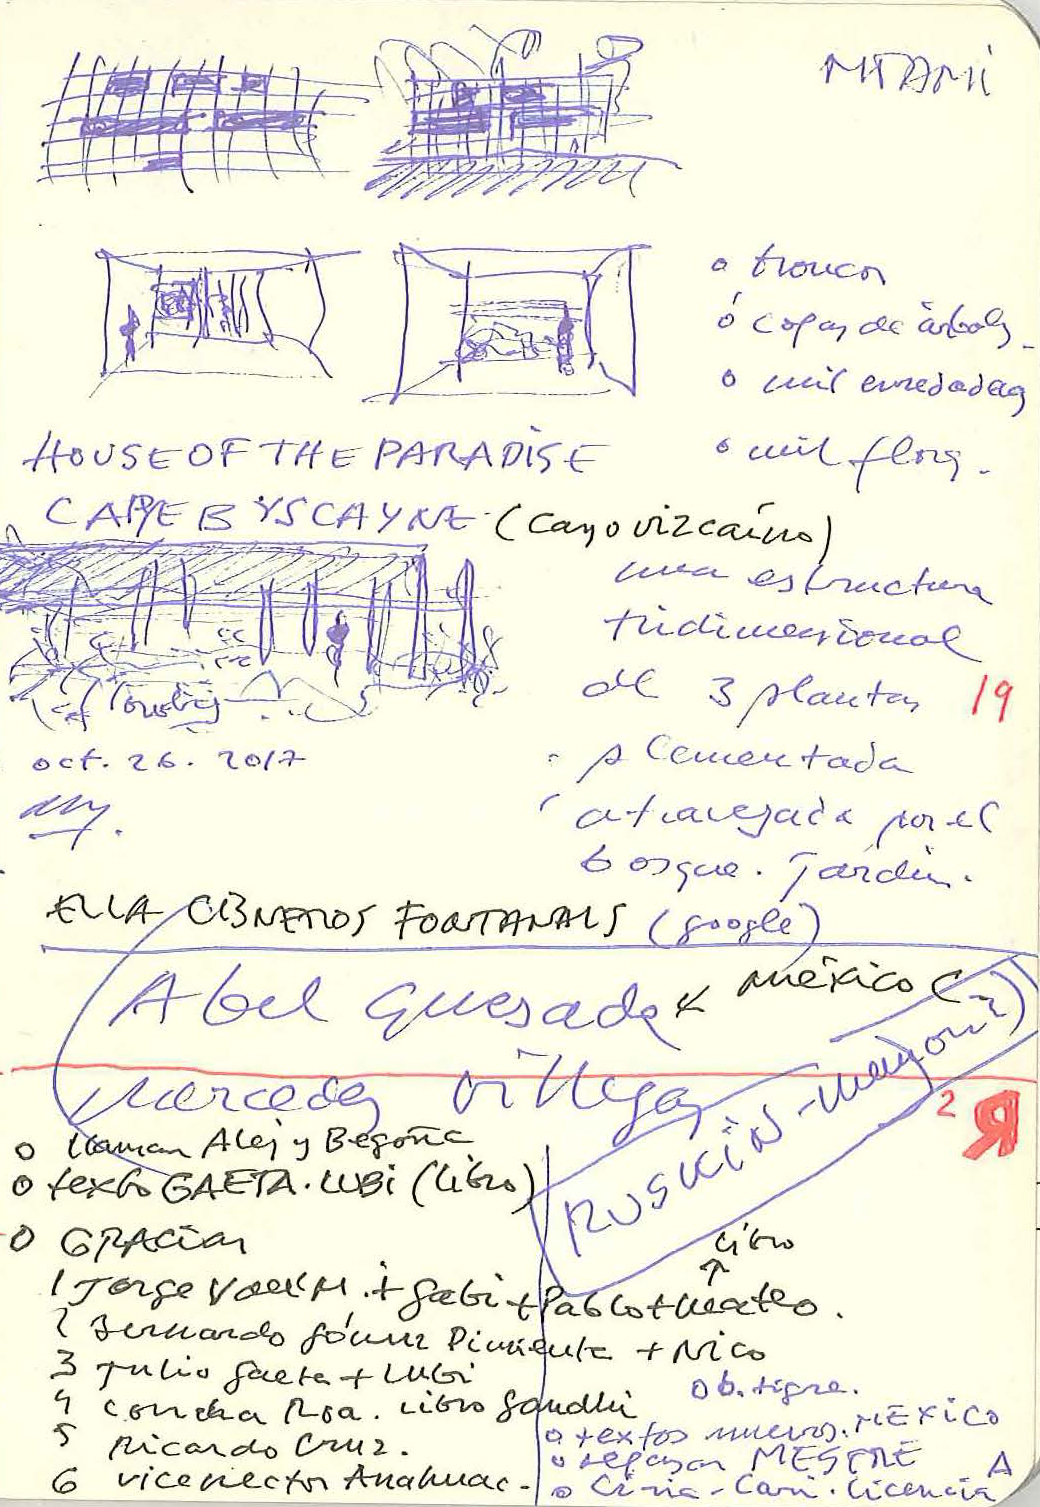 MIAMI
o troncos
o copas de árboles.
o mil enredadas
o mil flores.
HOUSE OF THE PARADISE
CAPE BYSCAYNE (Cayo vizcaíno)
una estructura
tridimensional
de 3 plantas
19
cementada
atravesada por el
bosque. Jardín.
oct. 26. 2017
ELLA CISNEROS FONTANALS (google)
Abel Quesada
México
Mercedes Villegas
RUSKIN-
2 R
o llaman Alej y Begoña
o texto GAETA.LUBI (libro)
o GRACIAS
libro
1 Jorge + Gabi + Pablo + Mateo.
2 Bernardo Gómez Pimienta + Nico
3 Julio Gaeta + Lubi
4 Concha Roa. Libro Gandhi
5 Ricardo Cruz.
6 vicerrector Anahuac.
o b. tigre.
o textos nuevos. MEXICO
o repasar MESTRE
A
licencia